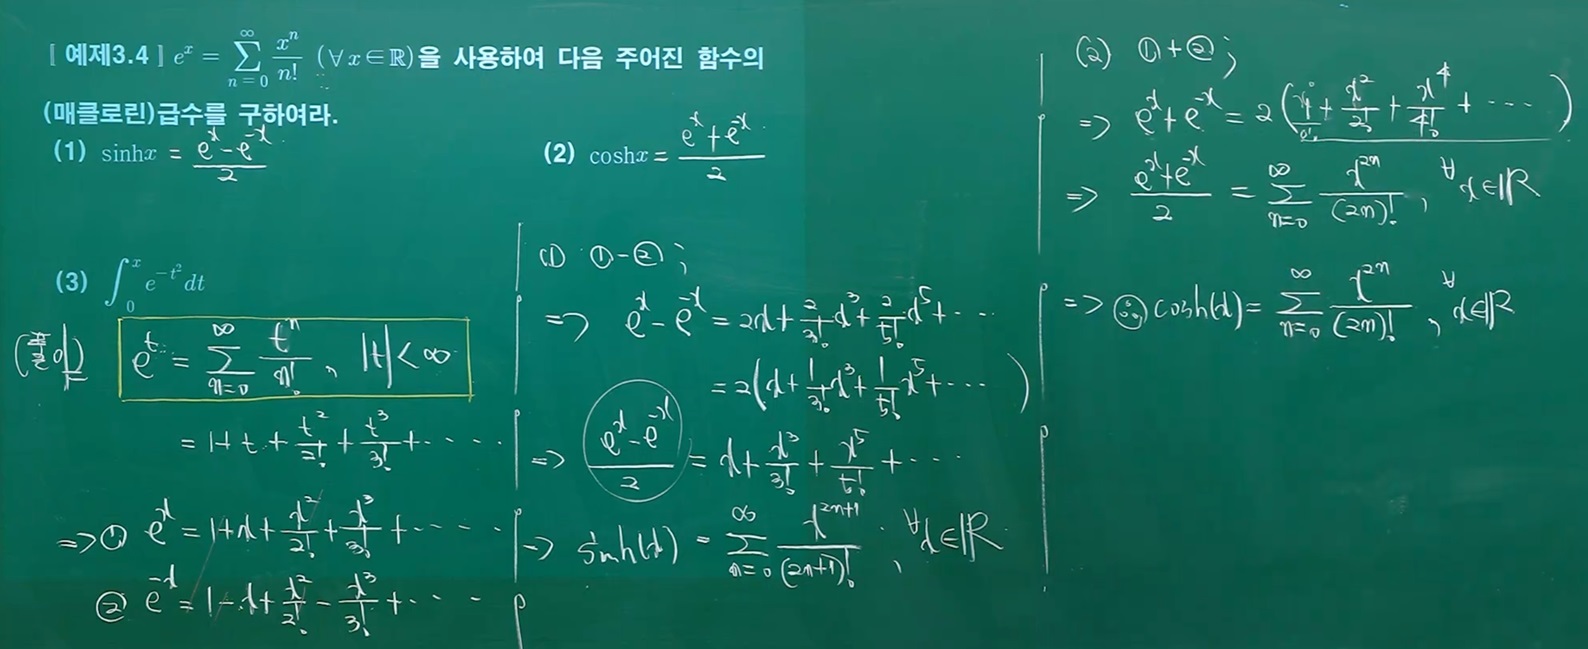 [예제3.4] e^x = ∑_{n=0}^{∞} x^n/n! (∀x∈ℝ)을 사용하여 다음 주어진 함수의
(매클로린)급수를 구하여라.
(1) sinhx = (e^x - e^{-x})/2
(2) coshx = (e^x + e^{-x})/2
(3) ∫_0^x e^{-t^2} dt
(풀이) e^t = ∑_{n=0}^{∞} t^n/n!, |t| < ∞
= 1 + t + t^2/2! + t^3/3! + ⋯
=> ① e^x = 1 + x + x^2/2! + x^3/3! + ⋯
② e^{-x} = 1 - x + x^2/2! - x^3/3! + ⋯
(1) ① - ② ;
=> e^x - e^{-x} = 2x + 2/3! x^3 + 2/5! x^5 + ⋯
= 2(x + 1/3! x^3 + 1/5! x^5 + ⋯ )
=> (e^x - e^{-x})/2 = x + x^3/3! + x^5/5! + ⋯
=> sinh(x) = ∑_{n=0}^{∞} x^{2n+1}/(2n+1)!, ∀x∈ℝ
(2) ① + ② ;
=> e^x + e^{-x} = 2(x^0/0! + x^2/2! + x^4/4! + ⋯ )
=> (e^x + e^{-x})/2 = ∑_{n=0}^{∞} x^{2n}/(2n)!, ∀x∈ℝ
=> ∴ cosh(x) = ∑_{n=0}^{∞} x^{2n}/(2n)!, ∀x∈ℝ